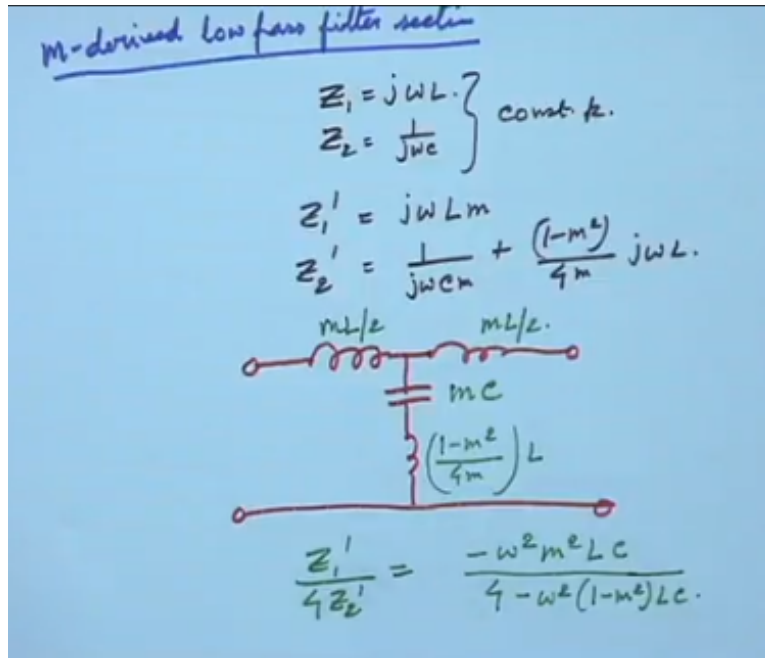 m-derived low pass filter section
Z₁ = jωL.
Z₂ = 1/jωC } const. k.
Z₁' = jωLm
Z₂' = 1/jωCm + (1-m²)/4m jωL.
mL/2 mL/2.
mC
((1-m²)/4m) L
Z₁'/4Z₂' = -ω²m²LC / 4-ω²(1-m²)LC.